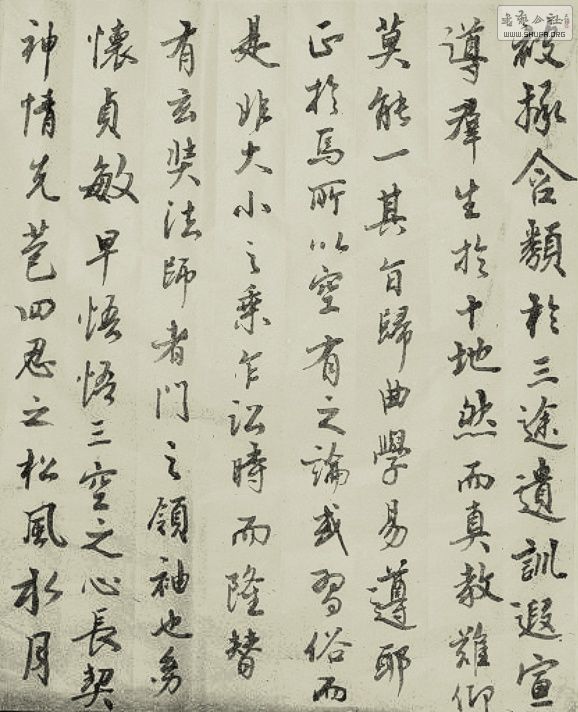 被拯含類於三途遺訓遐宣
導羣生於十地然而真教難仰
莫能一其旨歸曲學易遵耶
正於焉所以空有之論或習俗而
是非大小之乘乍沿時而隆替
有玄奘法師者門之領袖也幼
懷貞敏早悟悟三空之心長契
神情先苞四忍之松風水月
书艺公社
WWW.SHUFA.ORG